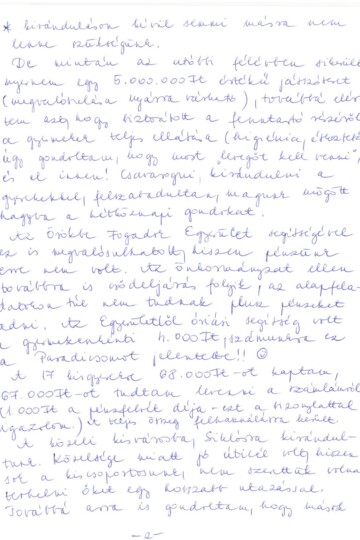 * kiránduláson kívül semmi másra nem
lenne szükségünk.
De miután az utóbbi félévben sikerült
nyernem egy 5.000.000Ft értékű játszóteret
(megvalósulása nyárra várható), továbbá elér-
tem azt, hogy biztosított a fenntartó részéről
a gyerekek teljes ellátása (higiénia, étkeztetés)
úgy gondoltam, hogy most „levegőt kell venni",
és el innen! Csavarogni, kirándulni a
gyerekekkel, felszabadultan, magunk mögött
hagyva a hétköznapi gondokat.
Az Örökbe Fogadó Egyesület segítségével
ez is megvalósulhatott, hiszen pénzünk
erre nem volt. Az önkormányzat ellen
továbbra is csődeljárás folyik, az alapfela-
datokon túl nem tudnak plusz pénzeket
adni. Az Egyesülettől óriási segítség volt
a gyermekenkénti 4.000Ft, számunkra ez
a Paradicsomot jelentette!! ☺
A 17 kisgyerekre 68.000Ft-ot kaptam,
67.000Ft-ot tudtam levenni a számláról
(1.000Ft a pénzfelvét díja - ezt a bizonylattal
igazolom.) A teljes összeg felhasználásra került.
A közeli kisvárosba, Siklósra kirándul-
tunk. Közelsége miatt jó úticél volt, hiszen
sok a kiscsoportosunk, nem szerettük volna
terhelni őket egy hosszabb utazással.
Továbbá arra is gondoltam, hogy mások
-2-